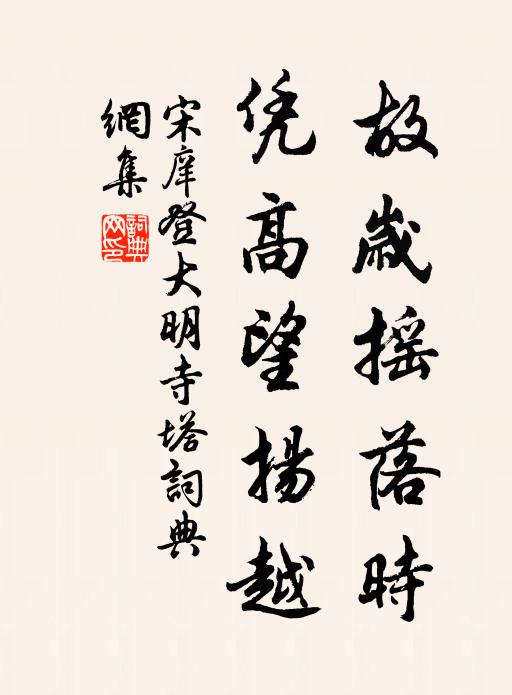 故歲搖落時
凭高望揚越
宋庠登大明寺塔詞典
網集
詞典網印